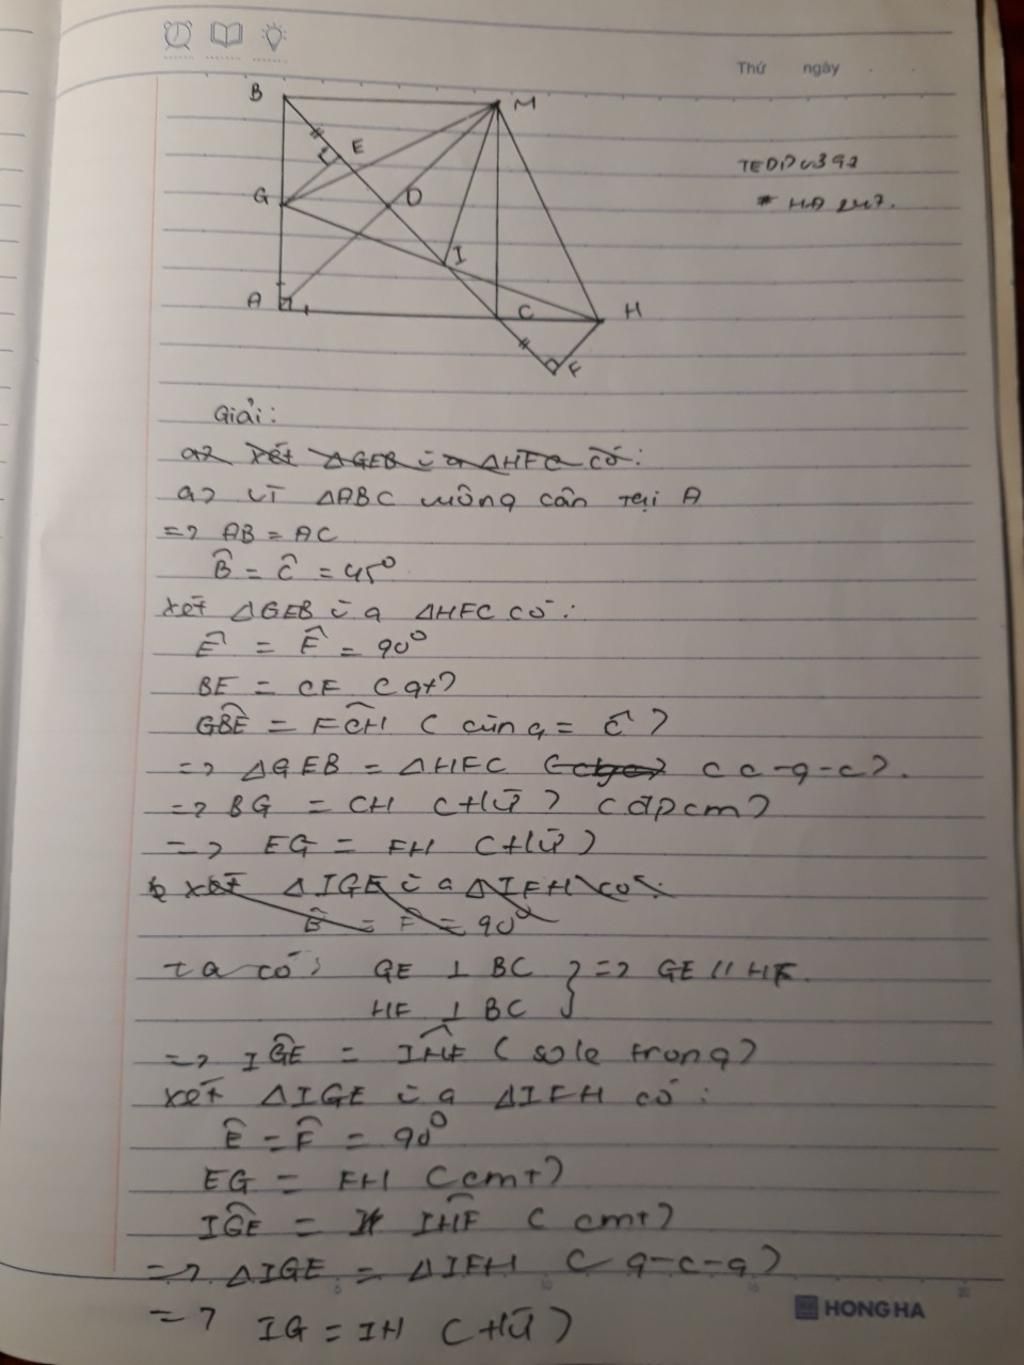 Thứ ngày
B
M
E
TEDDU392
G
D
* HA 247.
I
A
C
H
F
Giải:
a) Xét ΔGEB và ΔHFC có:
a) Vì ΔABC vuông cân tại A
=> AB = AC
B̂ = Ĉ = 45⁰
Xét ΔGEB và ΔHFC có:
Ê = F̂ = 90⁰
BE = CF (gt)
GB̂E = FĈH (cùng = Ĉ)
=> ΔGEB = ΔHFC (c-g-c).
=> BG = CH (+Ứ) (đpcm)
=> EG = FH (+Ứ)
Xét ΔIGE và ΔIFH có:
Ê = F̂ = 90⁰
ta có: GE ⊥ BC } => GE // HF.
HF ⊥ BC
=> IĜE = IĤF (sole trong)
Xét ΔIGE và ΔIFH có:
Ê = F̂ = 90⁰
EG = FH (cmt)
IĜE = IĤF (cmt)
=> ΔIGE = ΔIFH (g-c-g)
=> IG = IH (+Ứ)
HONG HA